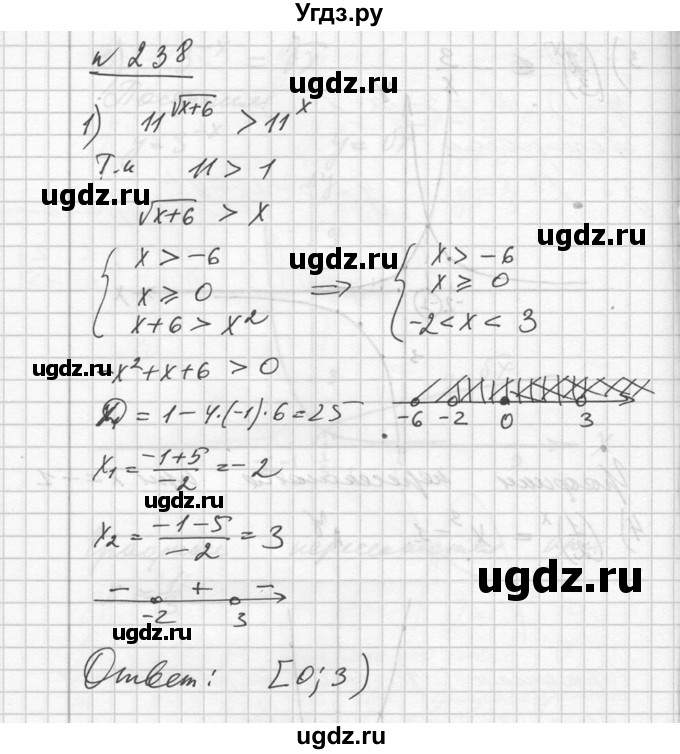 Угдз.ру
N 238
ugdz.ru
1) 11^√(x+6) > 11^x
ugdz.ru
Т.к 11 > 1
ugdz.ru
√(x+6) > x
ugdz.ru
{ x > -6
x ≥ 0
x+6 > x²
⇒
{ x > -6
x ≥ 0
-2 < x < 3
ugdz.ru
ugdz.ru
-x²+x+6 > 0
D = 1-4·(-1)·6 = 25
-6 -2 0 3
x₁ = (-1+5)/(-2) = -2
ugdz.ru
x₂ = (-1-5)/(-2) = 3
ugdz.ru
- + -
-2 3
ugdz.ru
Ответ: [0; 3)
ugdz.ru